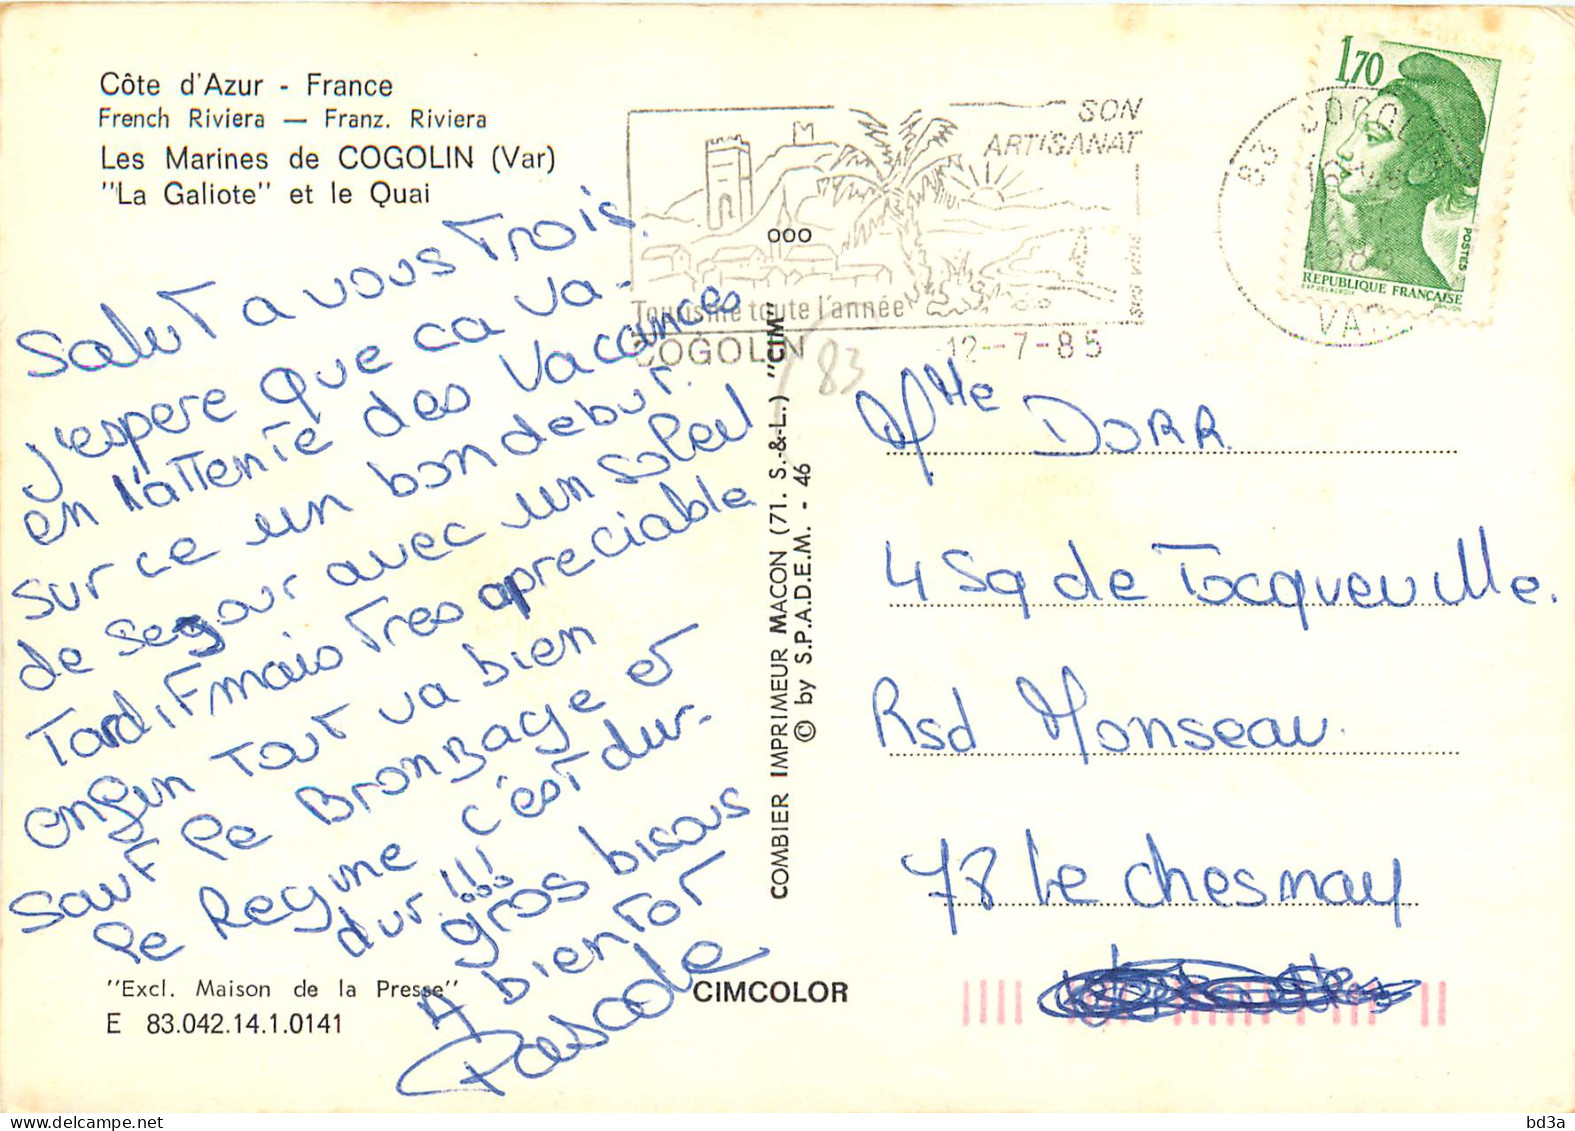 Côte d'Azur - France
French Riviera — Franz. Riviera
Les Marines de COGOLIN (Var)
"La Galiote" et le Quai
Salut a vous Trois.
J'espere que ca va.
en l'attente des vacances
sur ce un bon debut
de segour avec un soleil
Tardif mais Tres apreciable
enfin Tout va bien
sauf le Bronzage et
le Regime c'est dur.
dur !!!
gros bisous
A bientot
Pascale
"Excl. Maison de la Presse"
E 83.042.14.1.0141
CIMCOLOR
COMBIER IMPRIMEUR MACON (71. S.-&-L.) "CIM"
© by S.P.A.D.E.M. - 46
ooo
SON
ARTISANAT
Tourisme toute l'année
COGOLIN
12-7-85
83
83 COGOLIN
1985
VAR
1,70
POSTES
REPUBLIQUE FRANÇAISE
Mme DORR
4 Sq de Tocqueville.
Rsd Monseau.
78 Le chesnay
bd3a